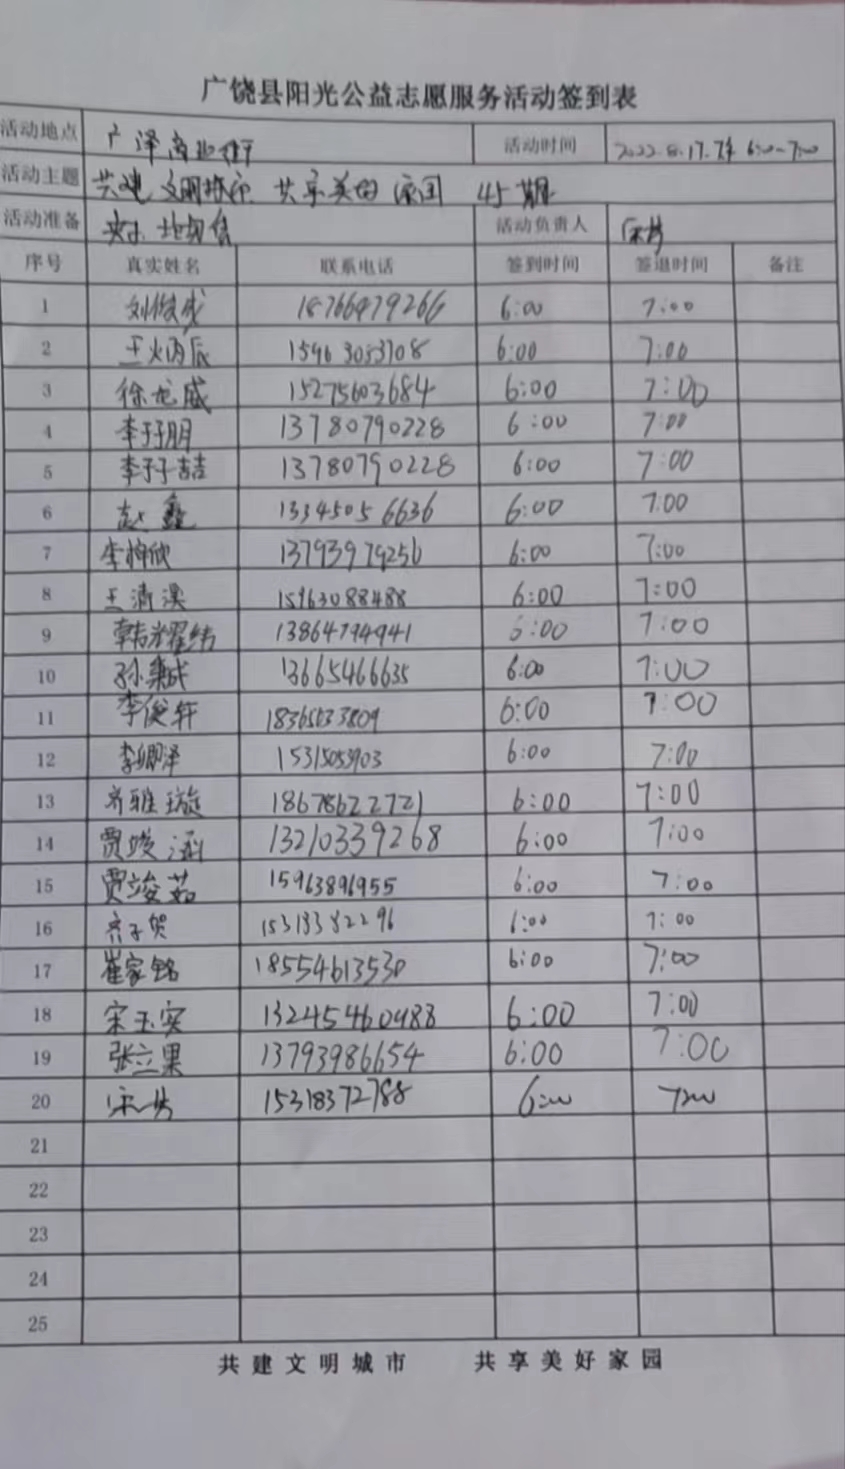 广饶县阳光公益志愿服务活动签到表
活动地点 广泽商业街 活动时间 2022.8.17. 6:00-7:00
活动主题 共建文明城市 共享美好家园 45期
活动准备 活动负责人
序号 真实姓名 联系电话 签到时间 签退时间 备注
1 刘俊成 18766479266 6:00 7:00
2 王炳辰 15963053708 6:00 7:00
3 徐龙威 15275603684 6:00 7:00
4 李子朋 13780790228 6:00 7:00
5 李子喆 13780790228 6:00 7:00
6 赵鑫 13345056636 6:00 7:00
7 李梓欣 13793979256 6:00 7:00
8 王清溪 15963088488 6:00 7:00
9 韩耀纬 13864794941 6:00 7:00
10 孙秉成 13665466635 6:00 7:00
11 李俊轩 6:00 7:00
12 6:00 7:00
13 齐雅璇 18678622721 6:00 7:00
14 贾竣涵 13210339268 6:00 7:00
15 贾竣茹 15963896955 6:00 7:00
16 齐子贺 15318382296 6:00 7:00
17 崔家铭 18554613530 6:00 7:00
18 宋玉安 13245460988 6:00 7:00
19 张立果 13793986654 6:00 7:00
20 15318372788 6:00 7:00
21
22
23
24
25
共建文明城市 共享美好家园